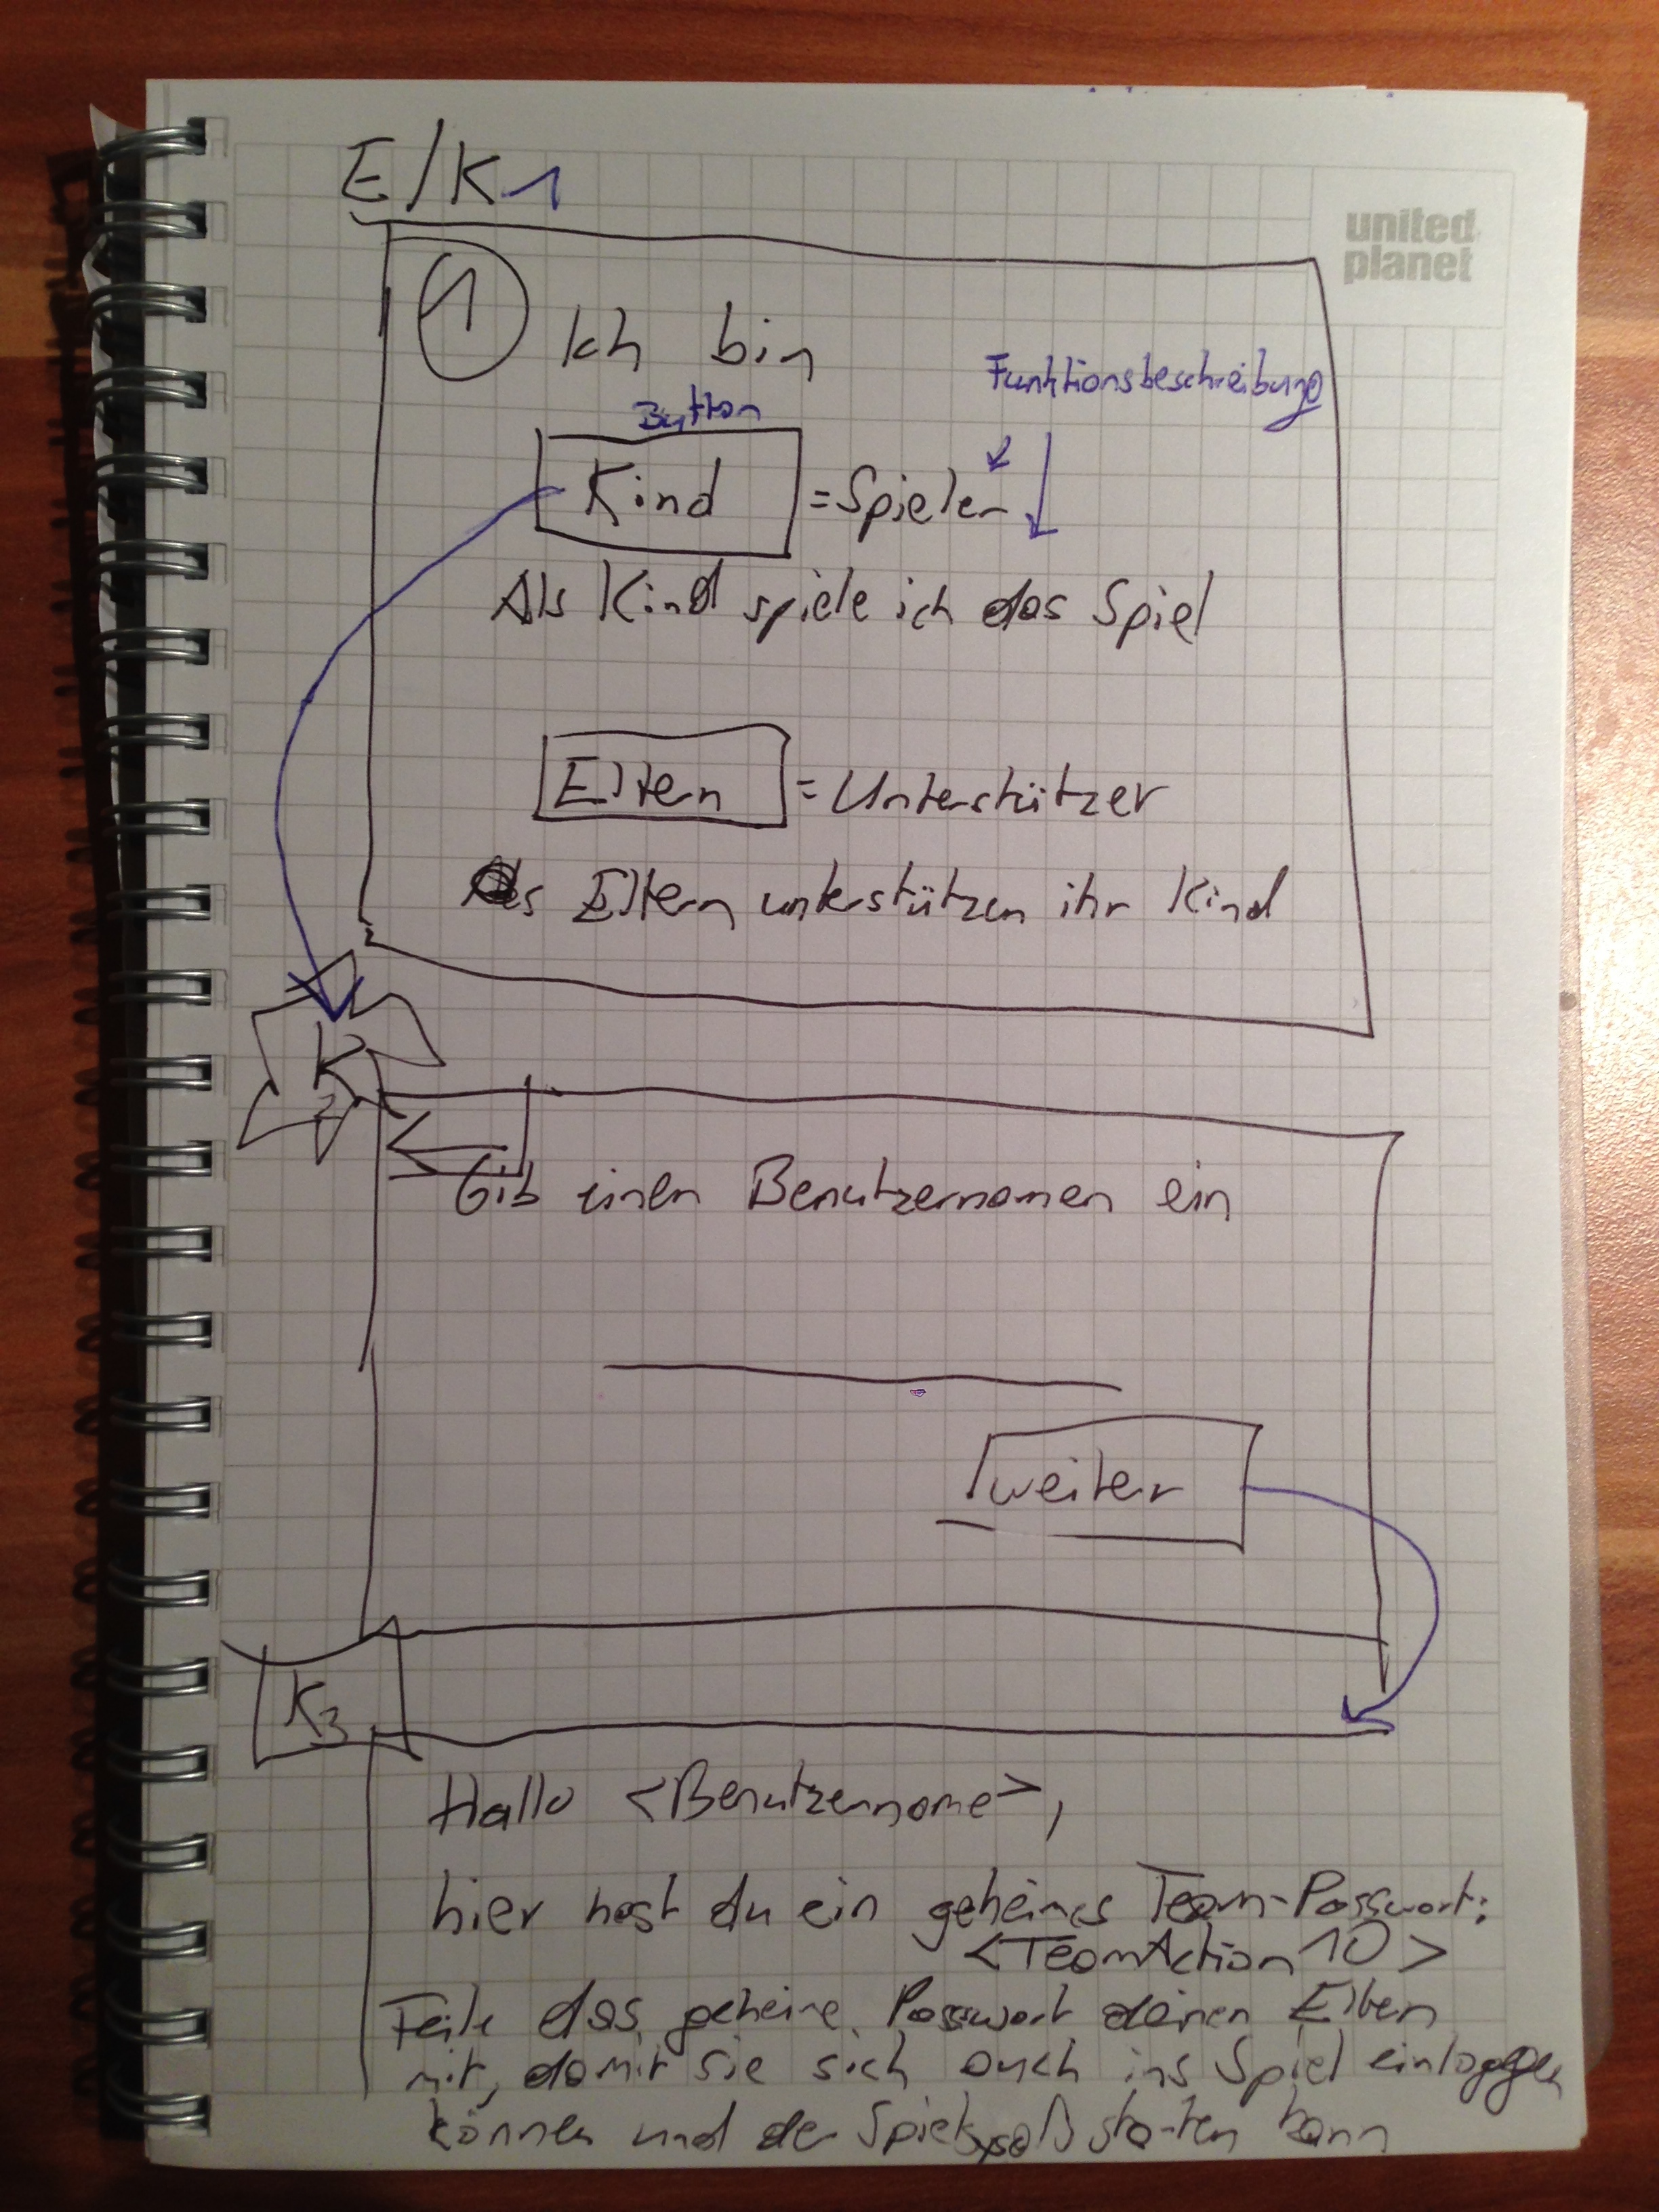 E/K1
united
planet
1
Ich bin
Funktionsbeschreibung
Button
Kind = Spieler
Als Kind spiele ich das Spiel
Eltern = Unterstützer
Als Eltern unterstützen ihr Kind
K2
Gib einen Benutzernamen ein
weiter
K3
Hallo <Benutzername>,
hier hast du ein geheimes Team-Passwort:
<TeamAction 10>
Teile das geheime Passwort deinen Eltern
mit, damit sie sich auch ins Spiel einloggen
können und der Spielspaß starten kann